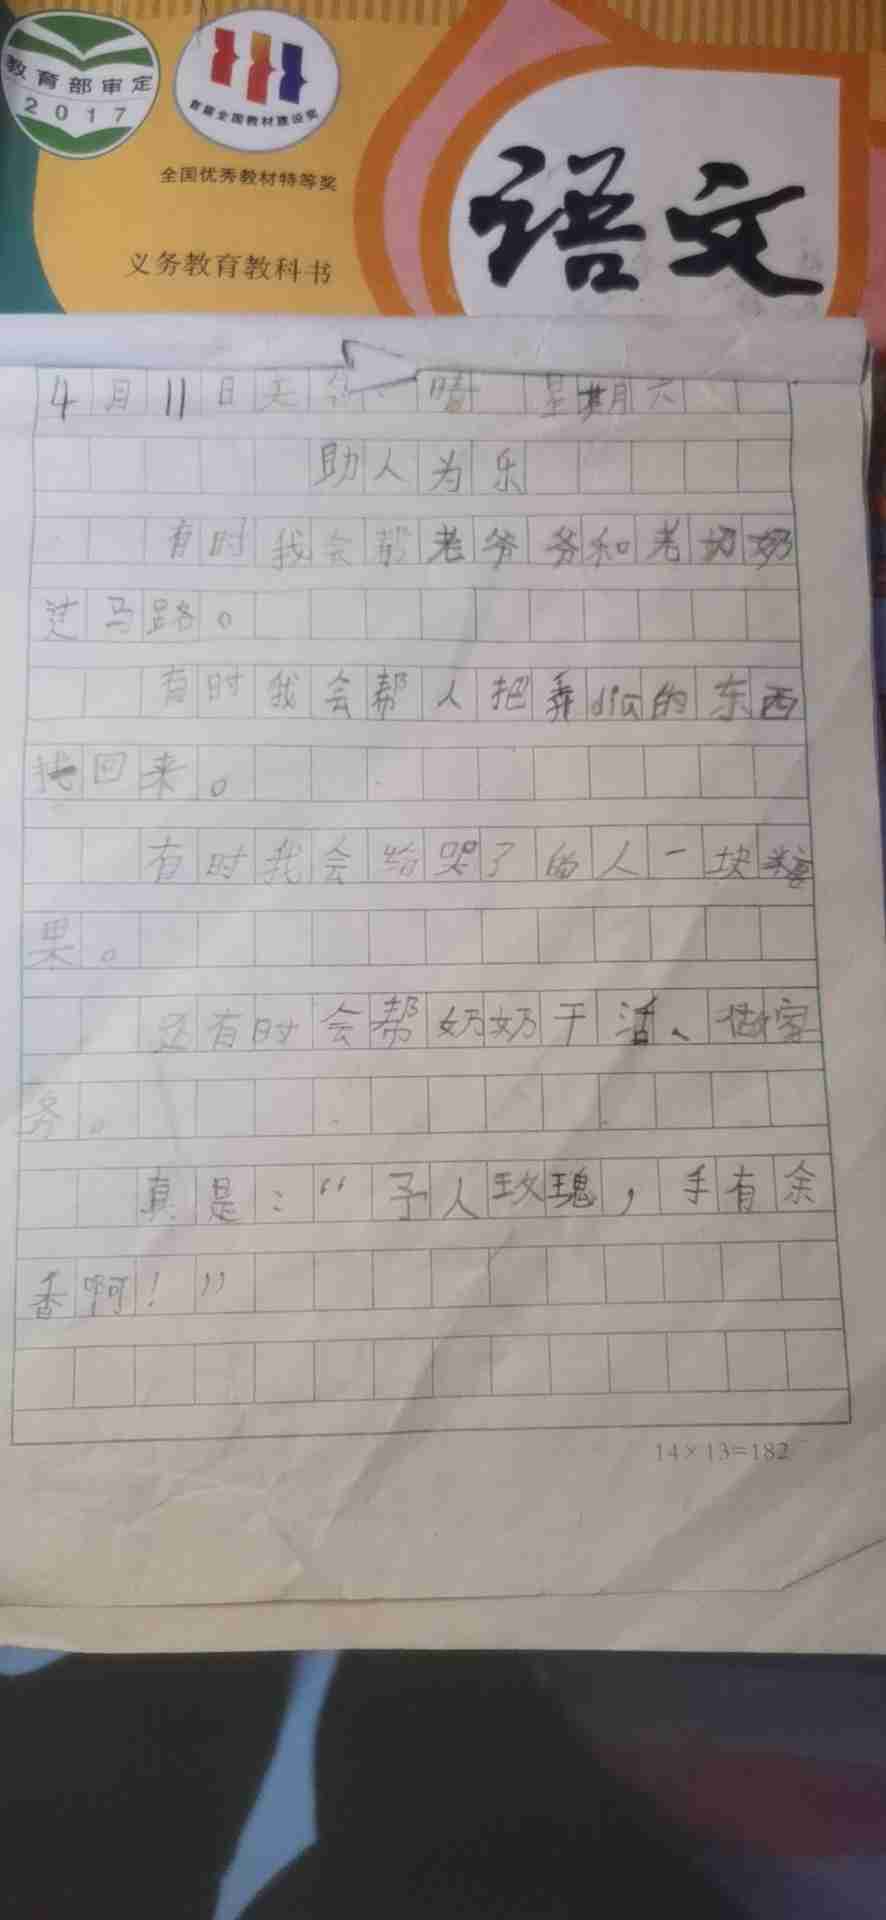 教育部审定
2017
首届全国教材建设奖
全国优秀教材特等奖
义务教育教科书
语文
4月11日天气:晴 星期六
助人为乐
有时我会帮老爷爷和老奶奶
过马路。
有时我会帮人把弄diu的东西
找回来。
有时我会给哭了的人一块糖
果。
还有时会帮奶奶干活、做家
务。
真是:“予人玫瑰,手有余
香啊!”
14×13=182